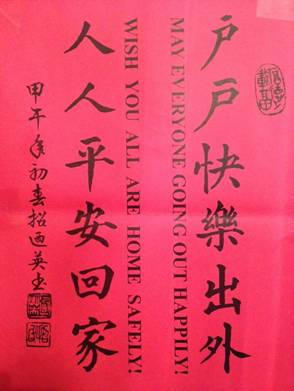 戶戶快樂出外
MAY EVERYONE GOING OUT HAPPILY!
人人平安回家
WISH YOU ALL ARE HOME SAFELY!
甲午年初春招迺英書